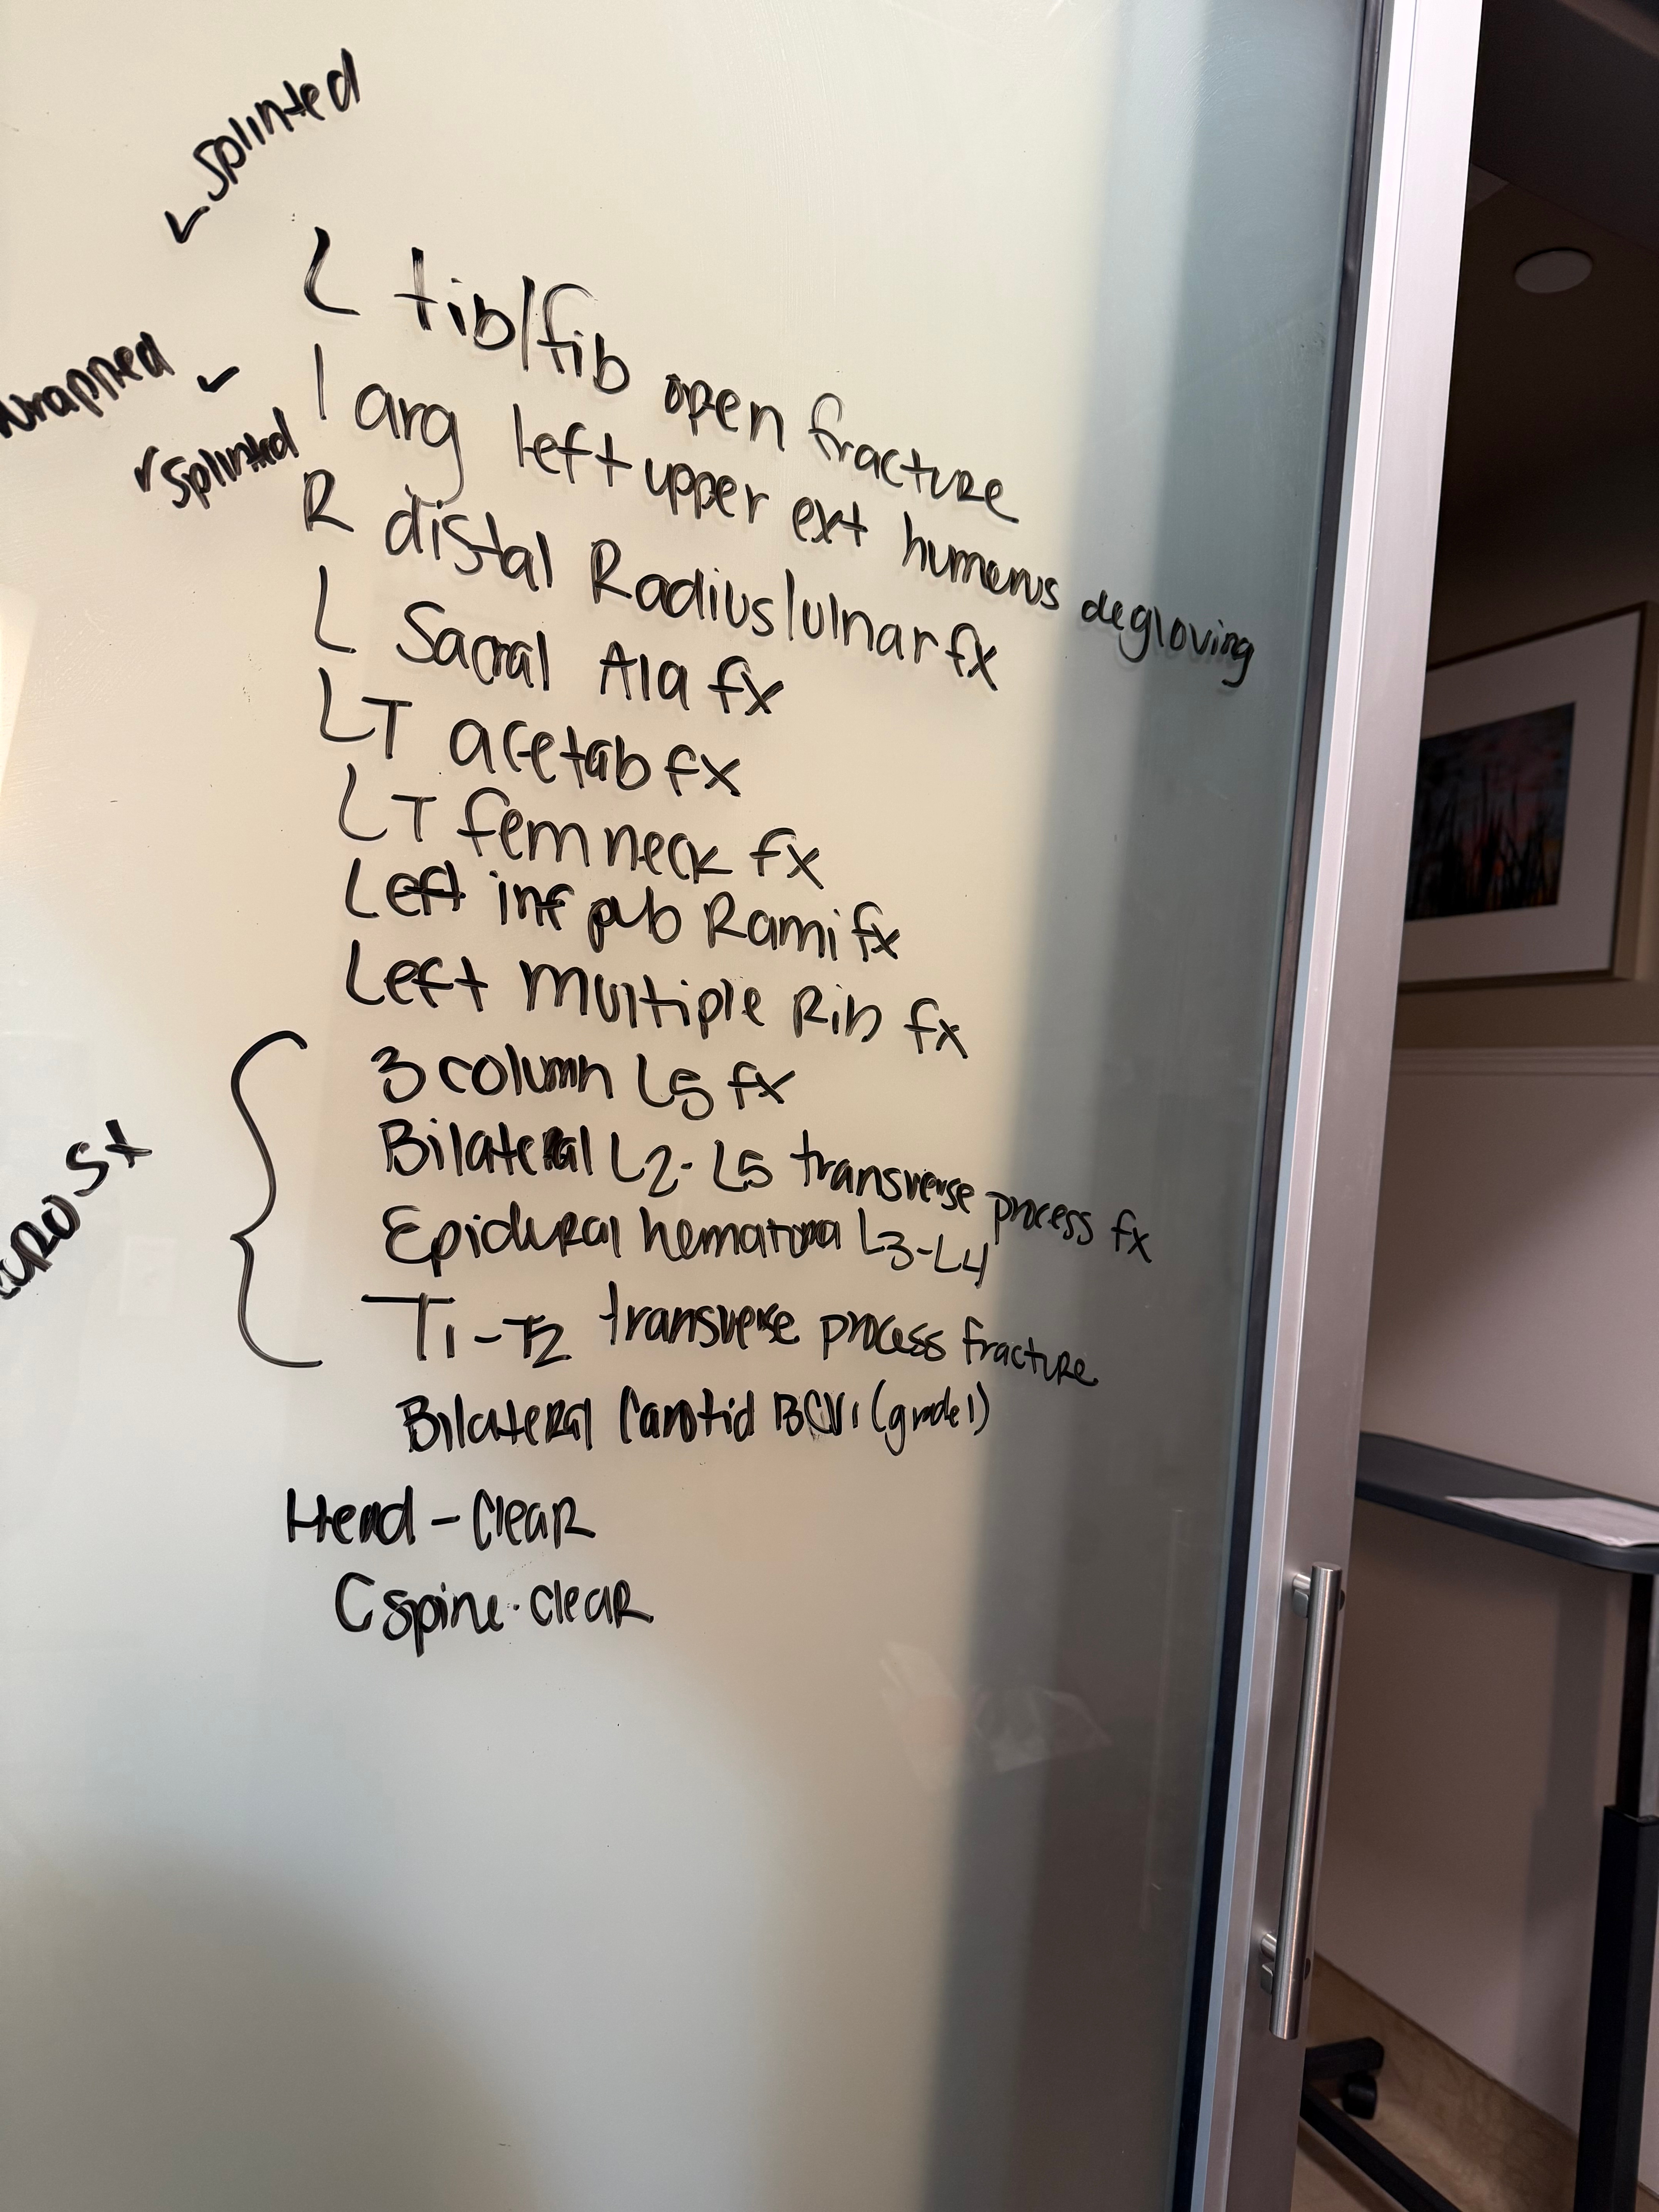 ✓ Splinted
L tib/fib open fracture
wrapped ✓
larg left upper ext humerus degloving
✓ Splinted
R distal Radius/ulnar fx
L Sacral Ala fx
LT acetab fx
LT fem neck fx
Left inf pub Rami fx
Left multiple Rib fx
3 column L5 fx
Bilateral L2-L5 transverse process fx
Epidural hematoma L3-L4
T1-T2 transverse process fracture
Bilateral Carotid BCVI (grade 1)
Head - Clear
C spine - clear